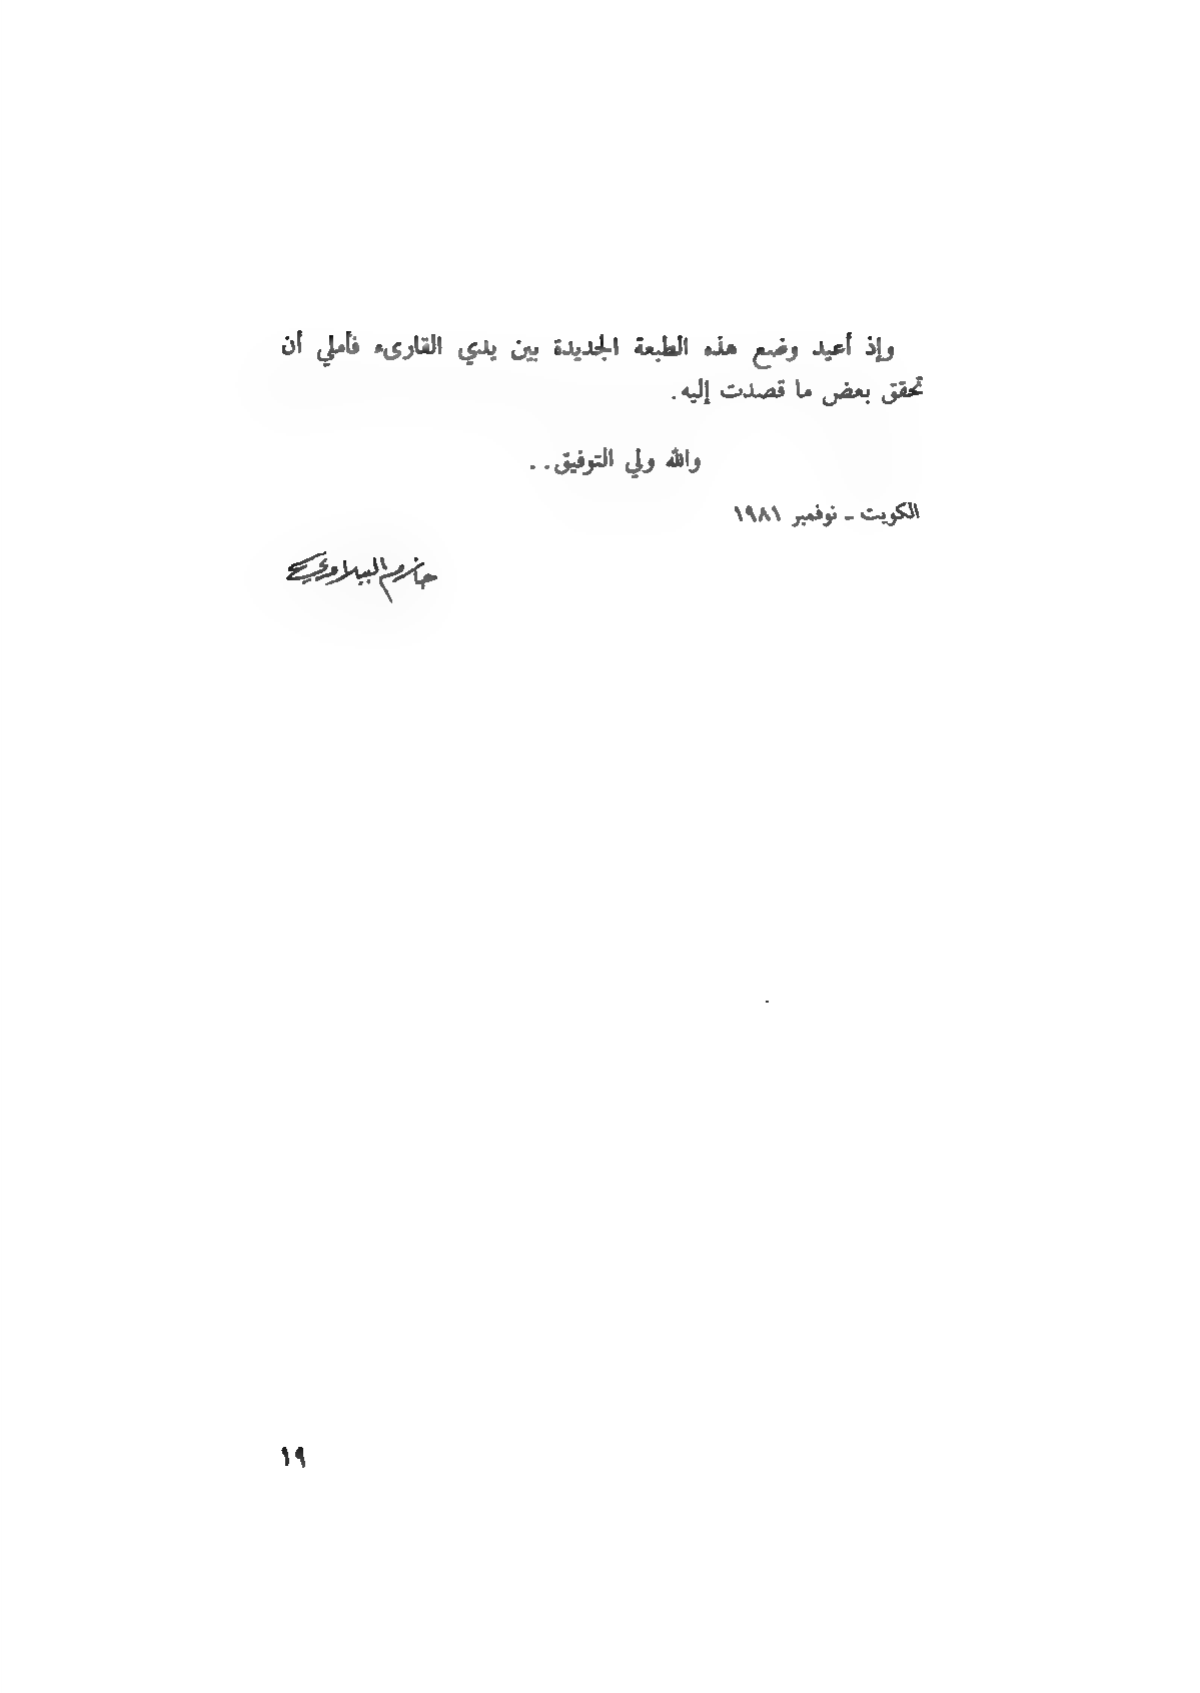 وإذ أعيد وضع هذه الطبعة الجديدة بين يدي القارىء فأملي أن
تحقق بعض ما قصدت إليه.
والله ولي التوفيق..
الكويت ـ نوفمبر ١٩٨١
حازم الببلاوي
١٩